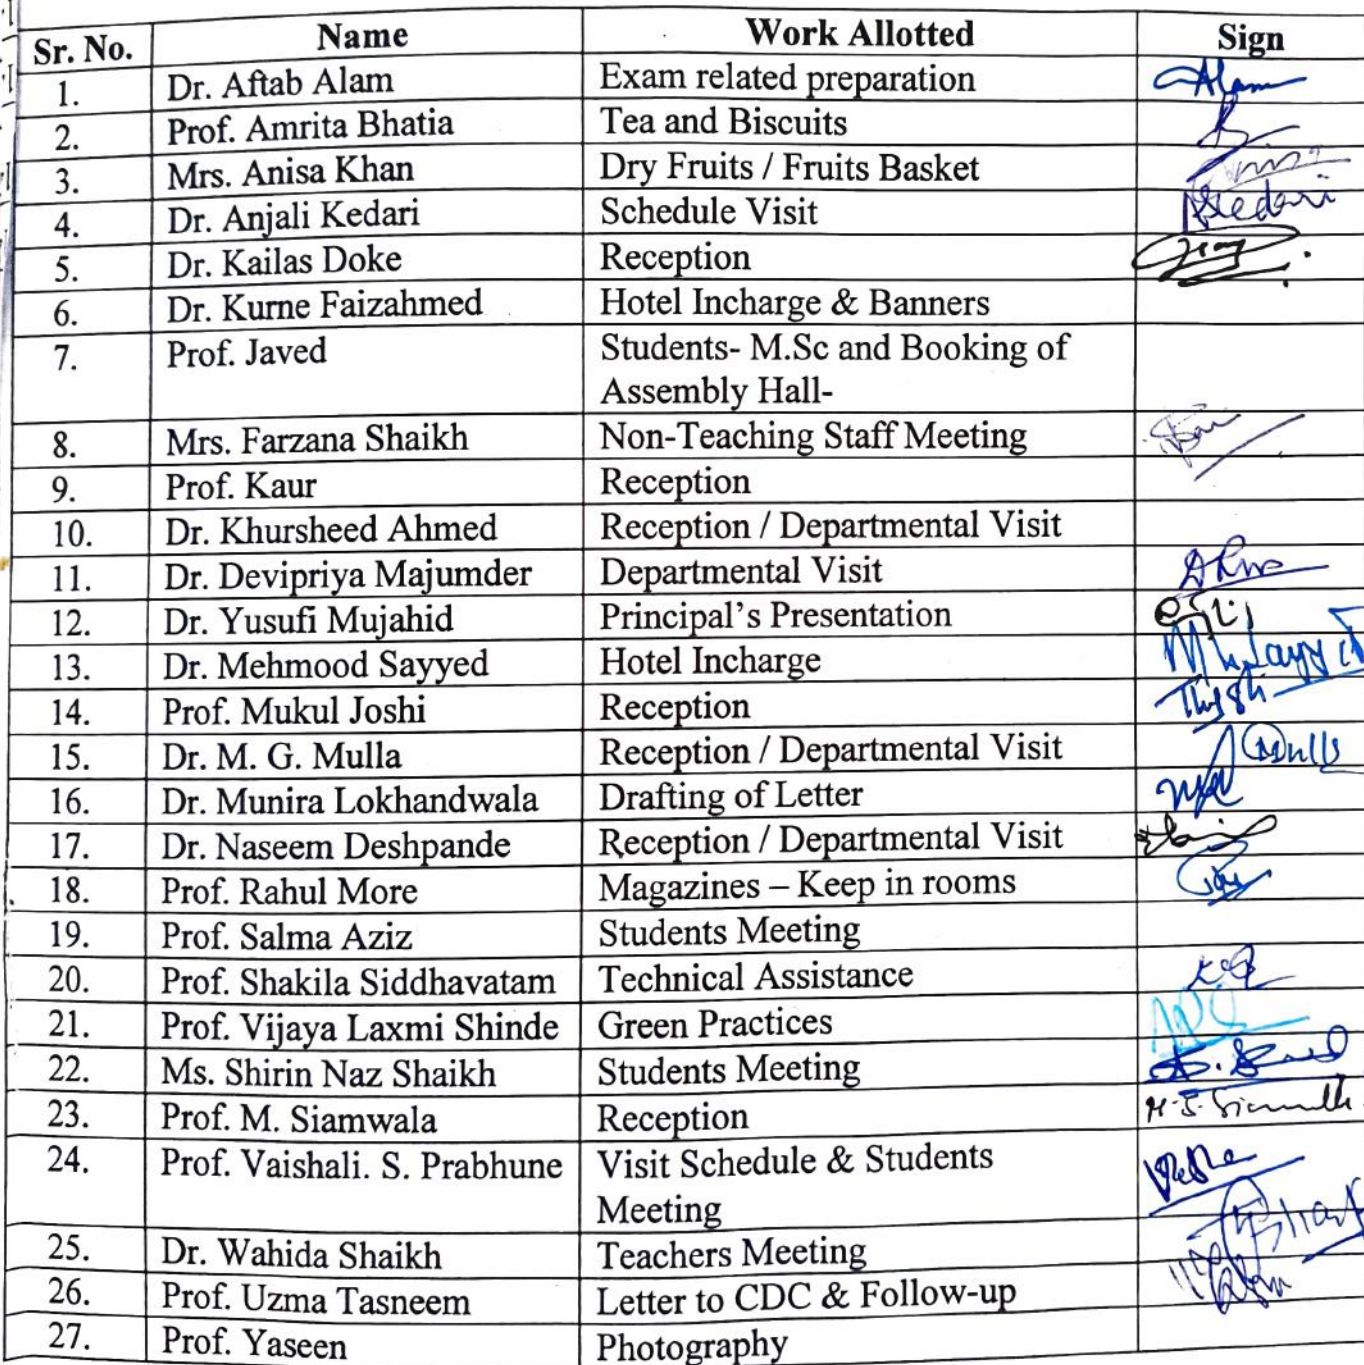 Sr. No. Name Work Allotted Sign
1. Dr. Aftab Alam Exam related preparation Alam
2. Prof. Amrita Bhatia Tea and Biscuits
3. Mrs. Anisa Khan Dry Fruits / Fruits Basket
4. Dr. Anjali Kedari Schedule Visit AKedari
5. Dr. Kailas Doke Reception
6. Dr. Kurne Faizahmed Hotel Incharge & Banners
7. Prof. Javed Students- M.Sc and Booking of
Assembly Hall-
8. Mrs. Farzana Shaikh Non-Teaching Staff Meeting
9. Prof. Kaur Reception
10. Dr. Khursheed Ahmed Reception / Departmental Visit
11. Dr. Devipriya Majumder Departmental Visit
12. Dr. Yusufi Mujahid Principal's Presentation
13. Dr. Mehmood Sayyed Hotel Incharge
14. Prof. Mukul Joshi Reception
15. Dr. M. G. Mulla Reception / Departmental Visit
16. Dr. Munira Lokhandwala Drafting of Letter
17. Dr. Naseem Deshpande Reception / Departmental Visit
18. Prof. Rahul More Magazines – Keep in rooms
19. Prof. Salma Aziz Students Meeting
20. Prof. Shakila Siddhavatam Technical Assistance
21. Prof. Vijaya Laxmi Shinde Green Practices
22. Ms. Shirin Naz Shaikh Students Meeting
23. Prof. M. Siamwala Reception
24. Prof. Vaishali. S. Prabhune Visit Schedule & Students
Meeting
25. Dr. Wahida Shaikh Teachers Meeting
26. Prof. Uzma Tasneem Letter to CDC & Follow-up
27. Prof. Yaseen Photography